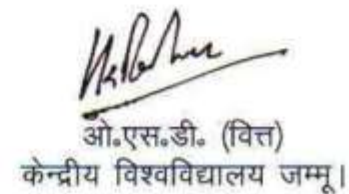 ओ॰एस॰डी॰ (वित्त)
केन्द्रीय विश्वविद्यालय जम्मू।